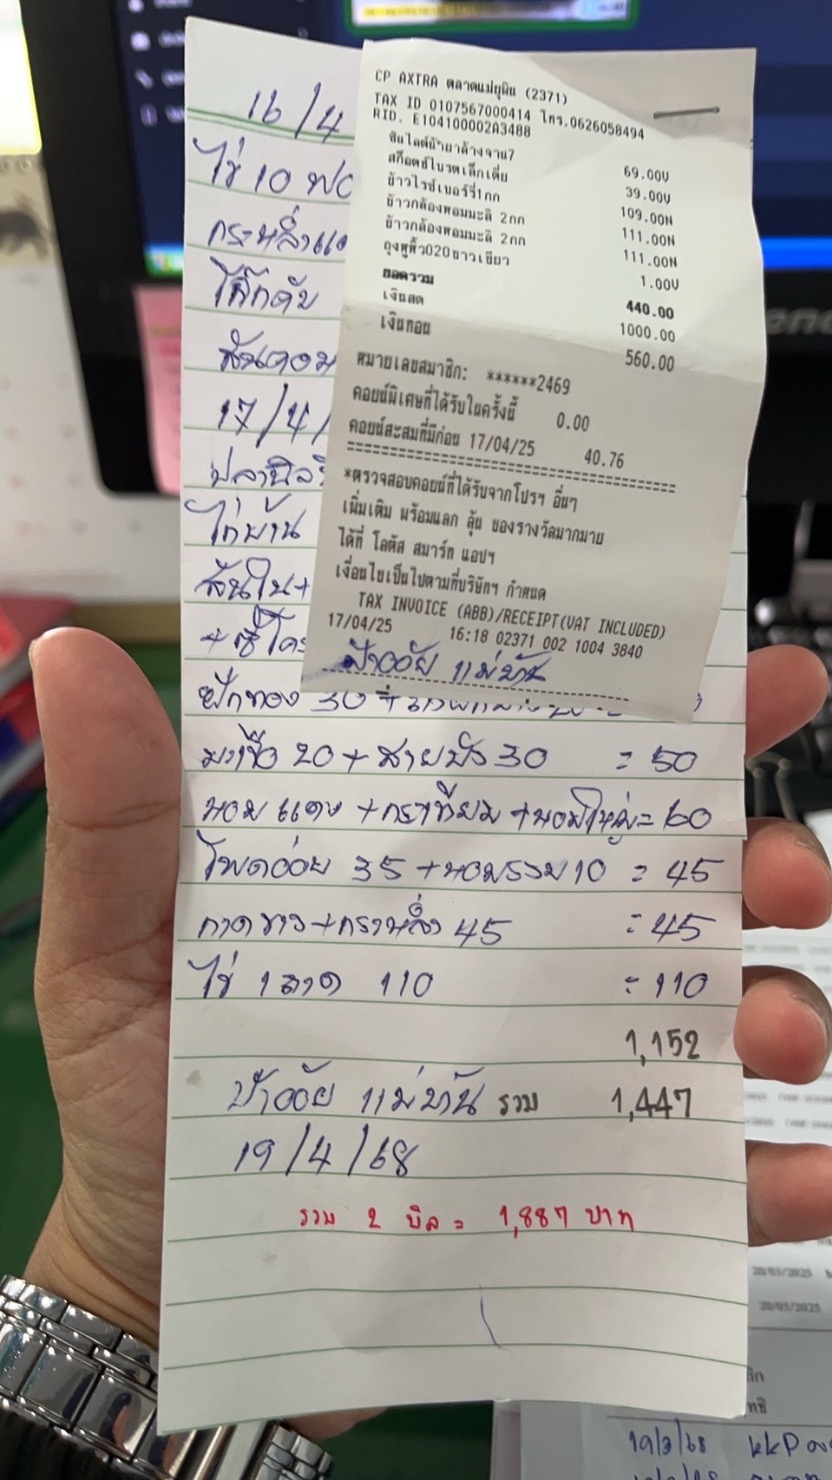 CP AXTRA ตลาดแม่ยุพิน (2371)
TAX ID 0107567000414 โทร.0626058494
RID. E104100002A3488
ซันไลต์น้ำยาล้างจาน7 69.00V
สก๊อตช์ไบรต์เล็กเดี่ย 39.00V
ข้าวไรซ์เบอร์รี่1กก 109.00N
ข้าวกล้องหอมมะลิ 2กก 111.00N
ข้าวกล้องหอมมะลิ 2กก 111.00N
ถุงหูหิ้ว020ขาวเขียว 1.00V
ยอดรวม 440.00
เงินสด 1000.00
เงินทอน 560.00
หมายเลขสมาชิก: ******2469
คอยน์พิเศษที่ได้รับในครั้งนี้ 0.00
คอยน์สะสมที่มีก่อน 17/04/25 40.76
*ตรวจสอบคอยน์ที่ได้รับจากโปรฯ อื่นๆ
เพิ่มเติม พร้อมแลก ลุ้น ของรางวัลมากมาย
ได้ที่ โลตัส สมาร์ท แอปฯ
เงื่อนไขเป็นไปตามที่บริษัทฯ กำหนด
TAX INVOICE (ABB)/RECEIPT(VAT INCLUDED)
17/04/25 16:18 02371 002 1004 3840
ป้าอ้อย แม่บ้าน
16/4
ไข่ 10 ฟอ
กะหล่ำ
ไก่
17/4/
ปลานิล
ไก่บ้าน
ฟักทอง 30 +
มะเขือ 20 + สายบัว 30 = 50
หอมแดง + กระเทียม + หอมใหญ่ = 60
โพดอ่อย 35 + หอมรวม 10 = 45
กาดขาว + กะหล่ำ 45 = 45
ไข่ 1 ลาด 110 = 110
1,152
ป้าอ้อย แม่บ้าน รวม 1,447
19/4/68
รวม 2 บิล = 1,887 บาท
20/03/2025
20/03/2025
19/3/68 KKP